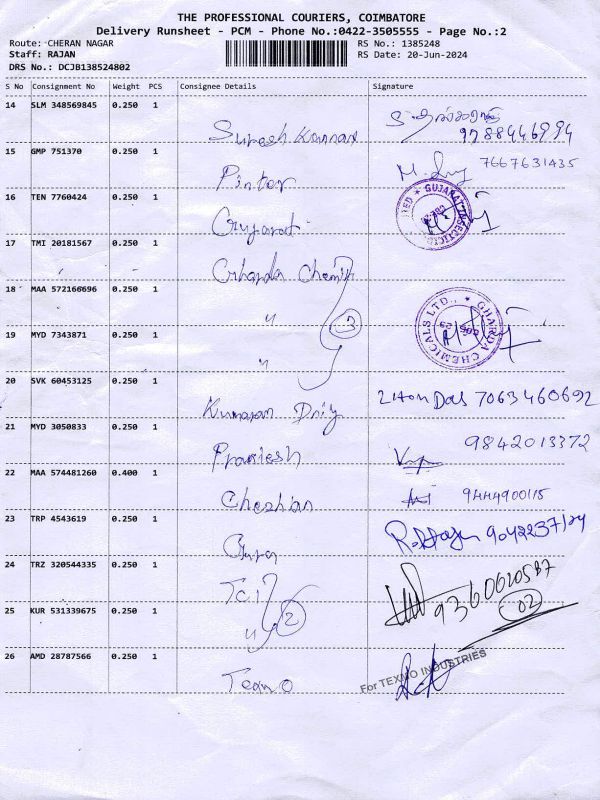 THE PROFESSIONAL COURIERS, COIMBATORE
Delivery Runsheet - PCM - Phone No.:0422-3505555 - Page No.:2
Route: CHERAN NAGAR RS No.: 1385248
Staff: RAJAN RS Date: 20-Jun-2024
DRS No.: DCJB138524802
S No Consignment No Weight PCS Consignee Details Signature
14 SLM 348569845 0.250 1
Suresh Kannan 9788446994
15 GMP 751370 0.250 1
Pinter 7667631435
16 TEN 7760424 0.250 1
Gujarat GUJARAT
17 TMI 20181567 0.250 1
Gharda Chemi
18 MAA 572166696 0.250 1
" 3 GHARDA CHEMICALS LTD.,
19 MYD 7343871 0.250 1
"
20 SVK 60453125 0.250 1
Kumaran 7063460692
21 MYD 3050833 0.250 1
9842013372
22 MAA 574481260 0.400 1
Chezhian 9444900115
23 TRP 4543619 0.250 1
24 TRZ 320544335 0.250 1
TCI
25 KUR 531339675 0.250 1
" 2 02
26 AMD 28787566 0.250 1
Texmo For TEXMO INDUSTRIES